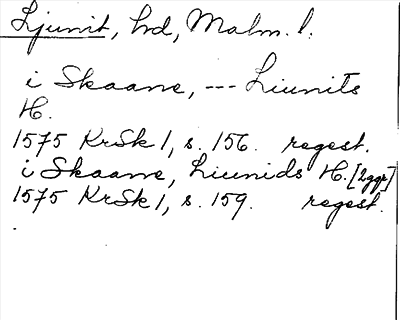 Ljunit, hd, Malm. l.
i Skaane, --- Liunits
H.
1575 KrSk 1, s. 156. regest.
i Skaane, Liunids H. [2ggr]
1575 KrSk 1, s. 159. regest.